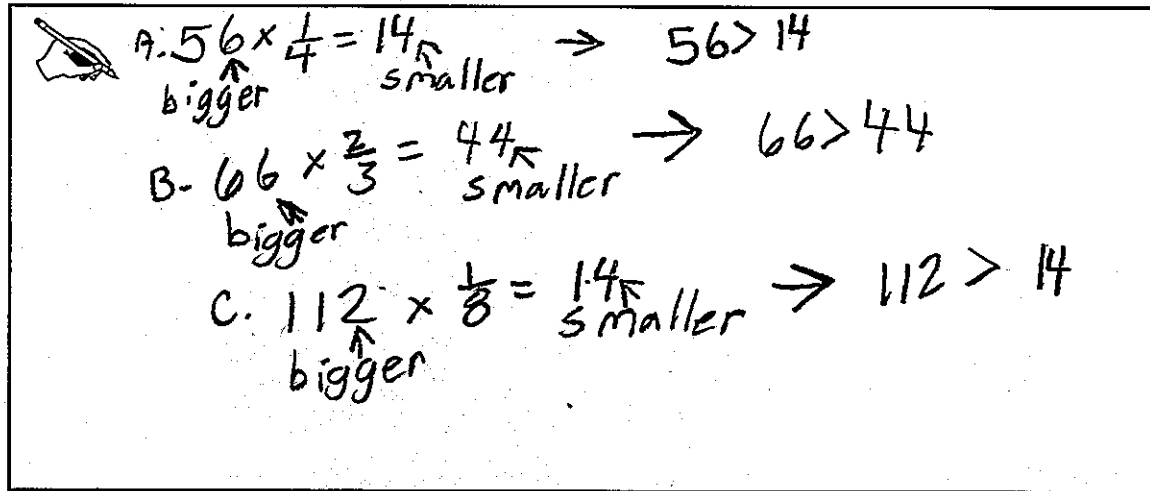 A. 56 × 1/4 = 14 → 56 > 14
bigger smaller
B- 66 × 2/3 = 44 → 66 > 44
bigger smaller
C. 112 × 1/8 = 14 → 112 > 14
bigger smaller